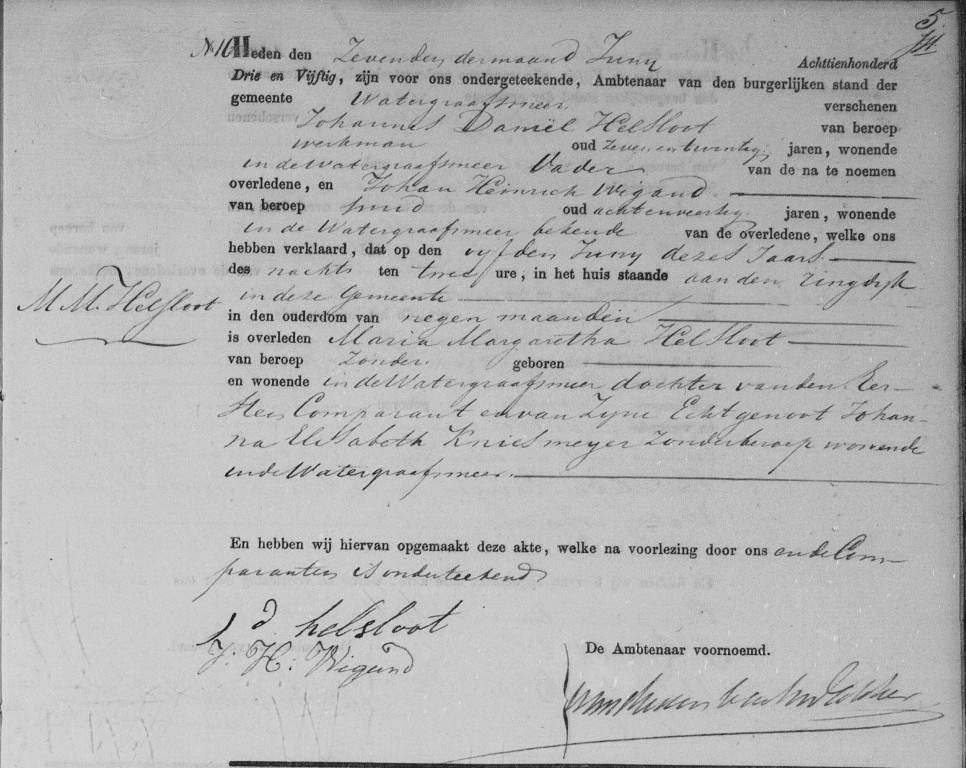 5
N 10 Heden den Zevenden der maand Juny Achttienhonderd
Drie en Vijftig, zijn voor ons ondergeteekende, Ambtenaar van den burgerlijken stand der
gemeente Watergraafsmeer verschenen
Johannes Daniël Helsloot van beroep
werkman oud zeven en twintig jaren, wonende
in de Watergraafsmeer Vader van de na te noemen
overledene, en Johan Heinrich Wigand
van beroep smid oud acht en veertig jaren, wonende
in de Watergraafsmeer bekende van de overledene, welke ons
hebben verklaard, dat op den vyfden Juny dezes Jaars
des nachts ten twee ure, in het huis staande aan den Ringdyk
M M Helsloot
in deze Gemeente
in den ouderdom van negen maanden
is overleden Maria Margaretha Helsloot
van beroep Zonder geboren
en wonende in de Watergraafsmeer dochter van den Eer-
sten Comparant en van Zyne Echtgenoot Johan-
na Elisabeth Kniesmeyer Zonder beroep wonende
in de Watergraafsmeer.
En hebben wij hiervan opgemaakt deze akte, welke na voorlezing door ons en de Com-
paranten is onderteekend
J d helsloot
J: H: Wigand
De Ambtenaar voornoemd.